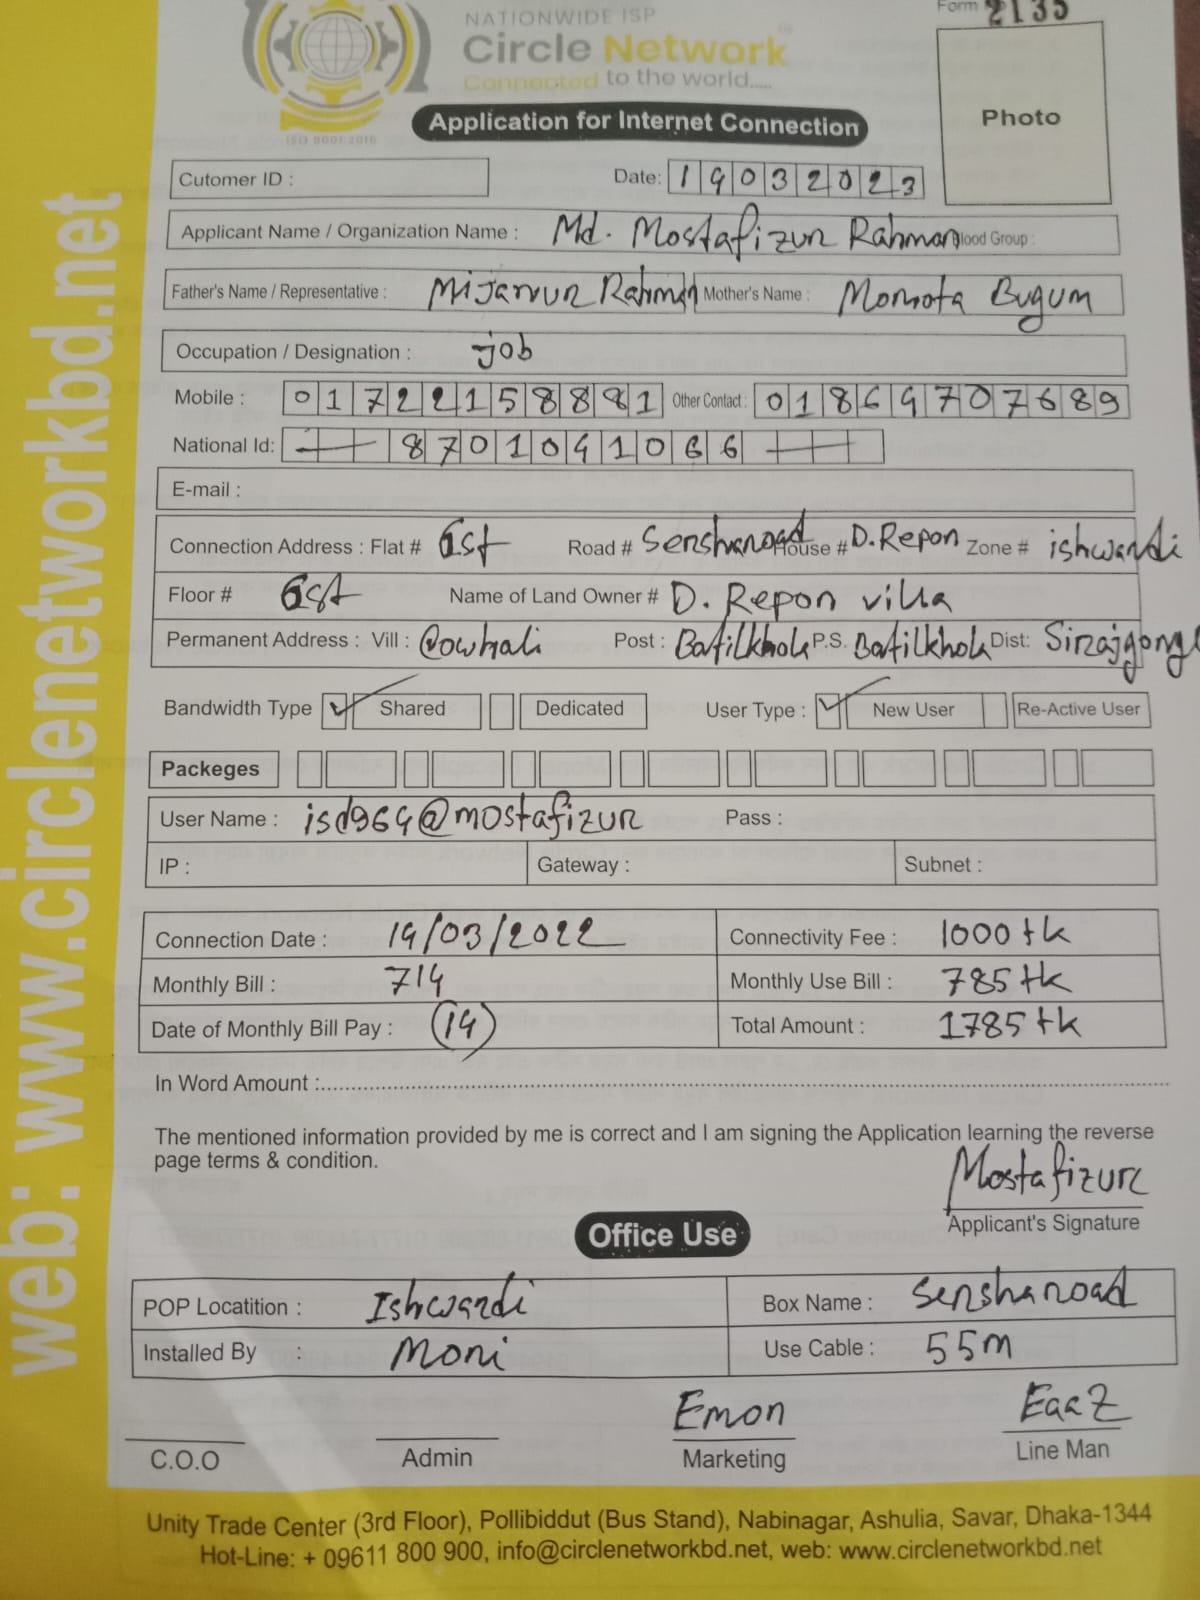 NATIONWIDE ISP
Form 2135
Circle Network
Connected to the world.....
ISO 9001:2015
Application for Internet Connection
Photo
Cutomer ID :
Date: 19032023
Applicant Name / Organization Name : Md. Mostafizur Rahman Blood Group :
Father's Name / Representative : Mijanur Rahman Mother's Name : Momota Bugum
Occupation / Designation : job
Mobile : 01722158881 Other Contact : 01869707689
National Id: 8701041066
E-mail :
Connection Address : Flat # 1st Road # Senshanoad House # D.Repon Zone # ishwardi
Floor # 1st Name of Land Owner # D. Repon villa
Permanent Address : Vill : Post : Batilkhola P.S. Batilkhola Dist: Sirajgong
Bandwidth Type ✓ Shared Dedicated User Type : ✓ New User Re-Active User
Packeges
User Name : isd964@mostafizur Pass :
IP : Gateway : Subnet :
Connection Date : 19/03/2022 Connectivity Fee : 1000 tk
Monthly Bill : 714 Monthly Use Bill : 785 tk
Date of Monthly Bill Pay : 19 Total Amount : 1785 tk
In Word Amount :
The mentioned information provided by me is correct and I am signing the Application learning the reverse
page terms & condition.
Mostafizur
Applicant's Signature
Office Use
POP Locatition : Ishwardi Box Name : Senshanoad
Installed By : Moni Use Cable : 55m
Emon
C.O.O Admin Marketing Line Man
Unity Trade Center (3rd Floor), Pollibiddut (Bus Stand), Nabinagar, Ashulia, Savar, Dhaka-1344
Hot-Line: + 09611 800 900, info@circlenetworkbd.net, web: www.circlenetworkbd.net
web: www.circlenetworkbd.net